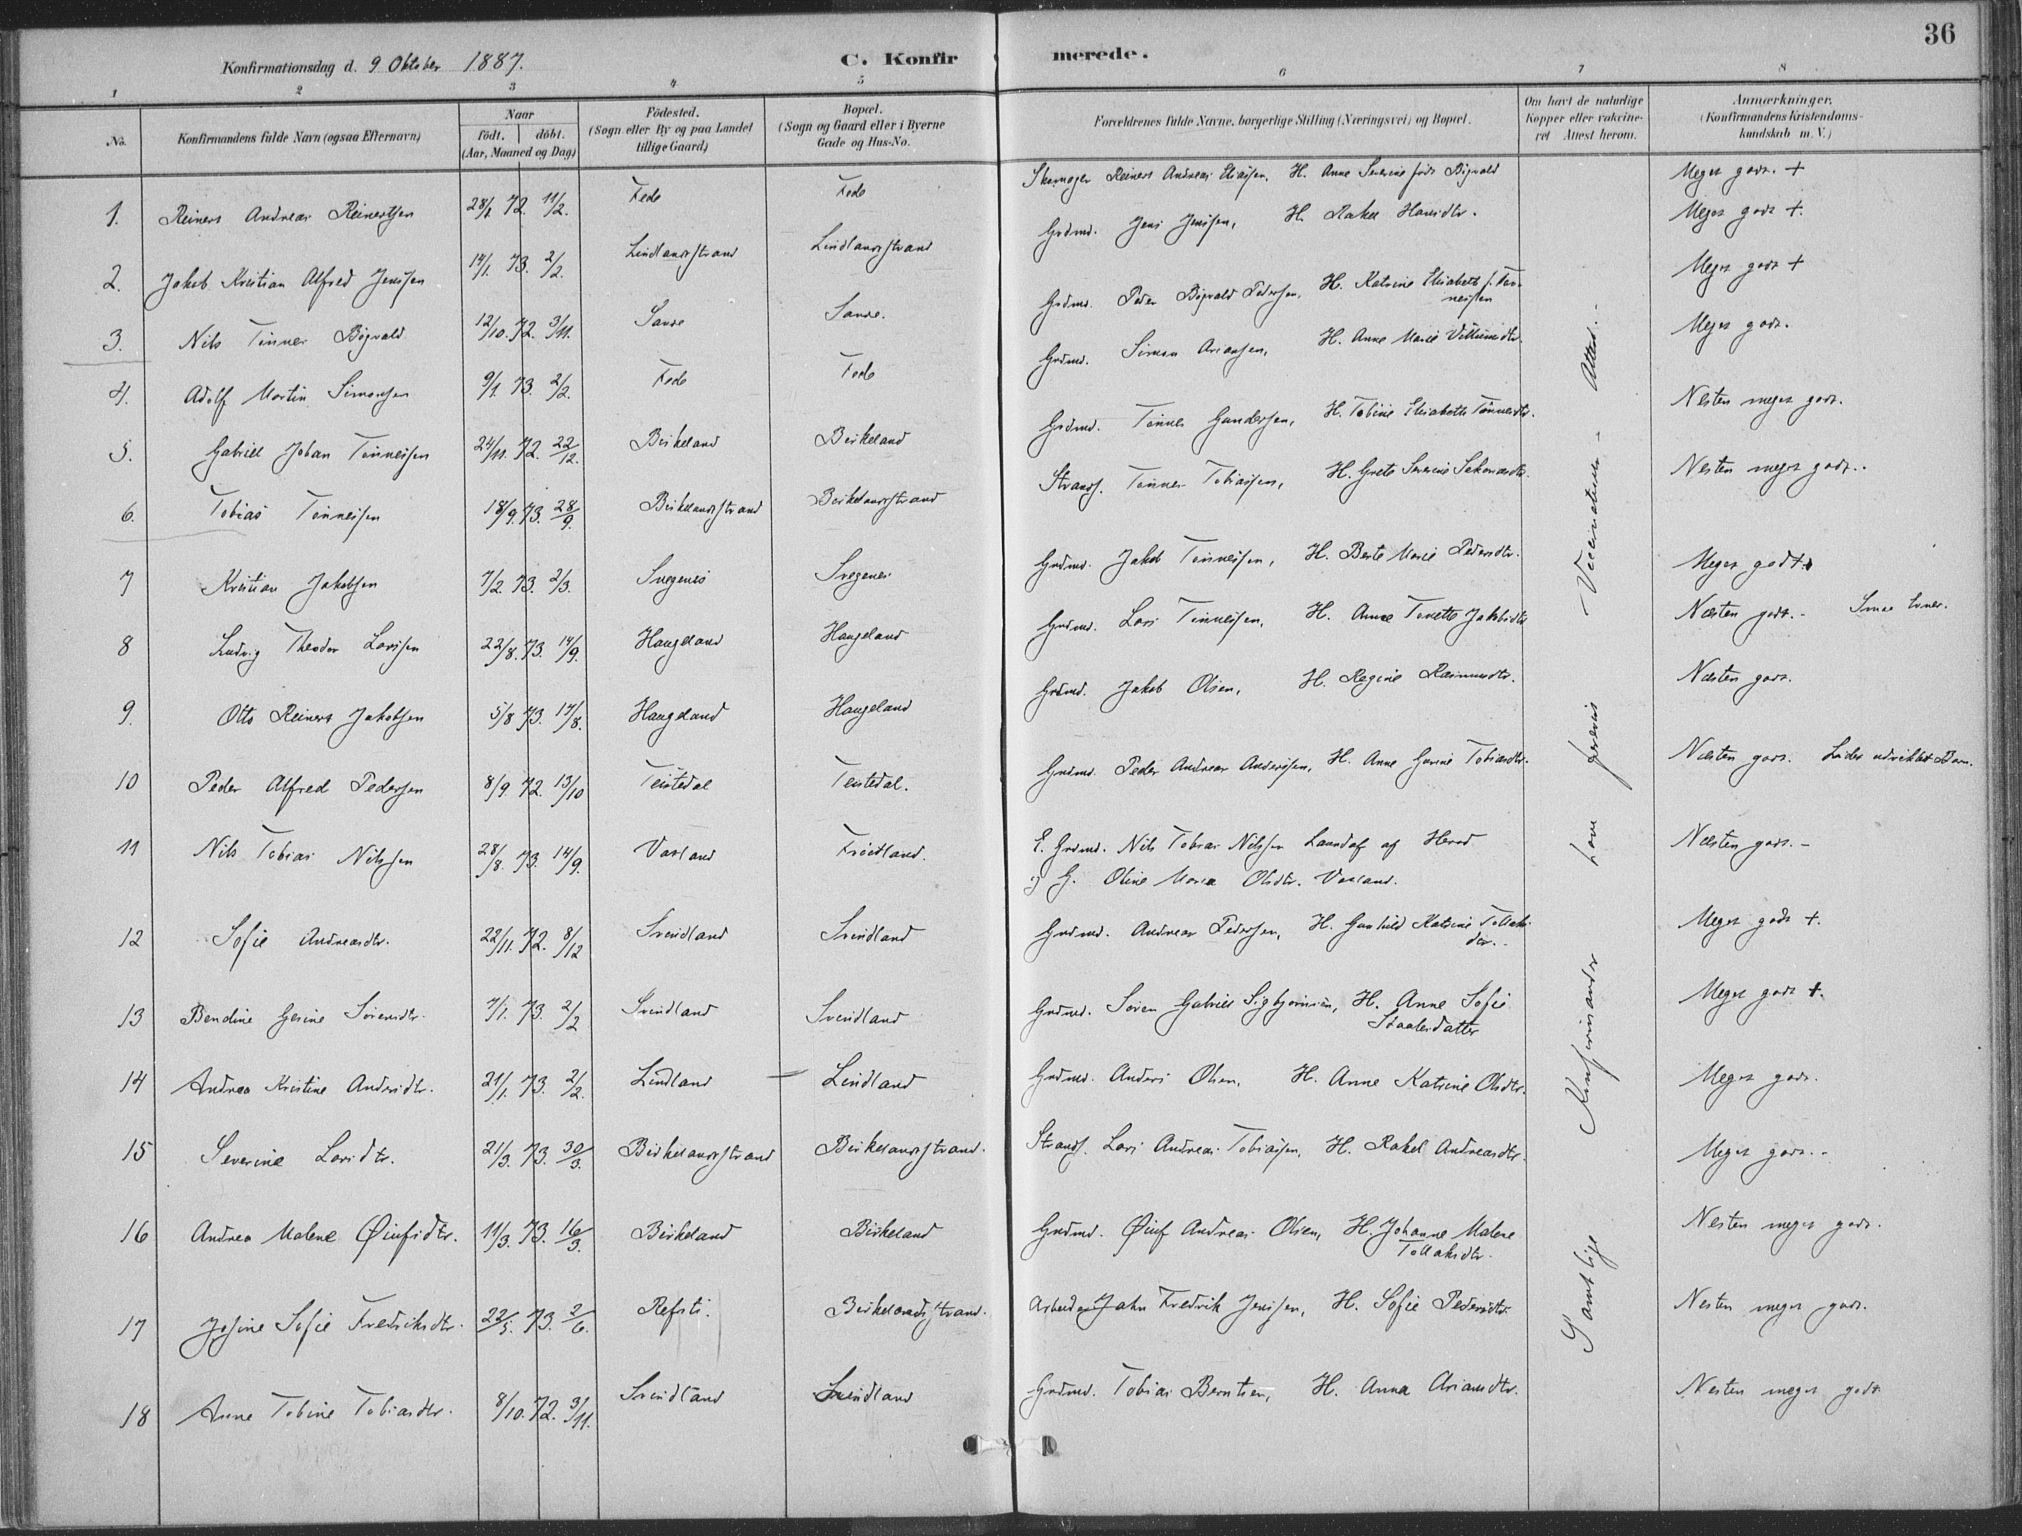 36
Konfirmationsdag d. 9 Oktober 1887.
C. Konfirmerede.
1 2 3 4 5 6 7 8
No.
Konfirmandens fulde Navn (ogsaa Efternavn)
Naar
födt. döbt.
(Aar, Maaned og Dag)
Födested.
(Sogn eller By og paa Landet
tillige Gaard)
Bopæl.
(Sogn og Gaard eller i Byerne
Gade og Hus-No.
Forældrenes fulde Navne, borgerlige Stilling (Næringsvei) og Bopæl.
Om havt de naturlige
Kopper eller vakcine-
ret Attest herom.
Anmærkninger,
(Konfirmandens Kristendoms-
kundskab m. V.)
1. Reinert Andreas Reinertsen 28/1 72. 11/2. Fede Fede Skomager Reinert Andreas Eliassen, H. Anne Severine født Bøgvald Meget godt. +
2. Jakob Kristian Alfred Jenssen 14/1. 73. 2/2. Lindlandsstrand Lindlandsstrand Grdmd. Jens Jenssen, H. Rakel Hansdtr. Meget godt +.
3. Nils Tønnes Bøgvald 12/10. 72. 3/11. Sande Sande. Grdmd. Peder Bøgvald Pedersen, H. Katrine Elisabeth f. Tønnessen Meget godt +
4. Adolf Martin Simonsen 9/1. 73. 2/2. Fede Fede Grdmd. Simon Ariansen, H. Anne Marie Villumsdtr. Meget godt.
5. Gabriel Johan Tønnessen 24/11. 72. 22/12. Birkeland Birkeland Grdmd. Tønnes Gundersen, H. Tobine Elisabeth Tønnesdtr. Nesten meget godt.
6. Tobias Tønnessen 18/9. 73. 28/9. Birkelandsstrand Birkelandsstrand Strands. Tønnes Tobiassen, H. Grete Severine Nesten meget godt.
7 Kristian Jakobsen 7/2. 73. 2/3. Svegenes Svegenes Grdmd. Jakob Tønnessen, H. Berte Marie Pedersdtr. Meget godt.
8 Ludvig Theodor Larssen 22/8. 73. 14/9. Haugeland Haugeland Grdmd. Lars Tønnessen, H. Anne Tonette Jakobsdtr Næsten godt. -
9. Otto Reinert Jakobsen 5/8 73. 17/8. Haugeland Haugeland Grdmd. Jakob Olsen, H. Regine Rasmusdtr. Næsten godt.
10 Peder Alfred Pedersen 8/9. 72. 13/10 Teistedal Teistedal. Grdmd. Peder Andreas Anderssen, H. Anne Gurine Tobiasdtr. Næsten godt.
11 Nils Tobias Nilssen 28/8. 73. 14/9. Vasland Frøitland. E. Grdmd. Nils Tobias Nilssen af Herad
G. Oline Maria Olsdtr. Vasland. Næsten godt. -
12 Sofie Andreasdtr. 22/11. 72. 8/12 Svindland Svindland Grdmd. Andreas Pedersen, H. Gunhild Katrine Tollaksdtr. Meget godt +.
13 Bendine Gesine Sørensdtr. 7/1. 73. 2/2 Svindland Svindland Grdmd. Søren Gabriel Sigbjørnsen, H. Anne Sofie
Staalesdatter Meget godt +.
14 Andrea Kristine Andersdtr. 21/1. 73. 2/2. Lindland Lindland Grdmd. Anders Olsen, H. Anne Katrine Olsdtr. Meget godt.
15 Severine Larsdtr. 21/3. 73. 30/3. Birkelandsstrand Birkelandsstrand. Strands. Lars Andreas Tobiassen, H. Rakel Andreasdtr. Meget godt. -
16 Andrea Malene Øiufsdtr. 11/3. 73. 16/3. Birkeland Birkeland Grdmd. Øiuf Andreas Olsen, H. Johanne Malene
Tollaksdtr. Nesten meget godt.
17 Josine Sofie Fredriksdtr. 22/5. 73. 2/6. Refsti. Birkelandsstrand. Arbeider Jahn Fredrik Jenssen, H. Sofie Pedersdtr. Nesten meget godt.
18 Anne Tobine Tobiasdtr. 8/10. 72. 3/11. Svindland Svindland Grdmd. Tobias Berntsen, H. Anna Ariansdtr. Nesten meget godt
Samtlige Konfirmander have forevist Vaccinations - Attest. -